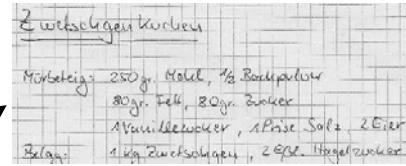 Zwetschgen Kuchen
Mürbeteig: 250 gr. Mehl, 1/2 Backpulver
80 gr. Fett, 80 gr. Zucker
1 Vanillezucker, 1 Prise Salz, 2 Eier
Belag: 1 kg Zwetschgen, 2 Eßl. Hagelzucker